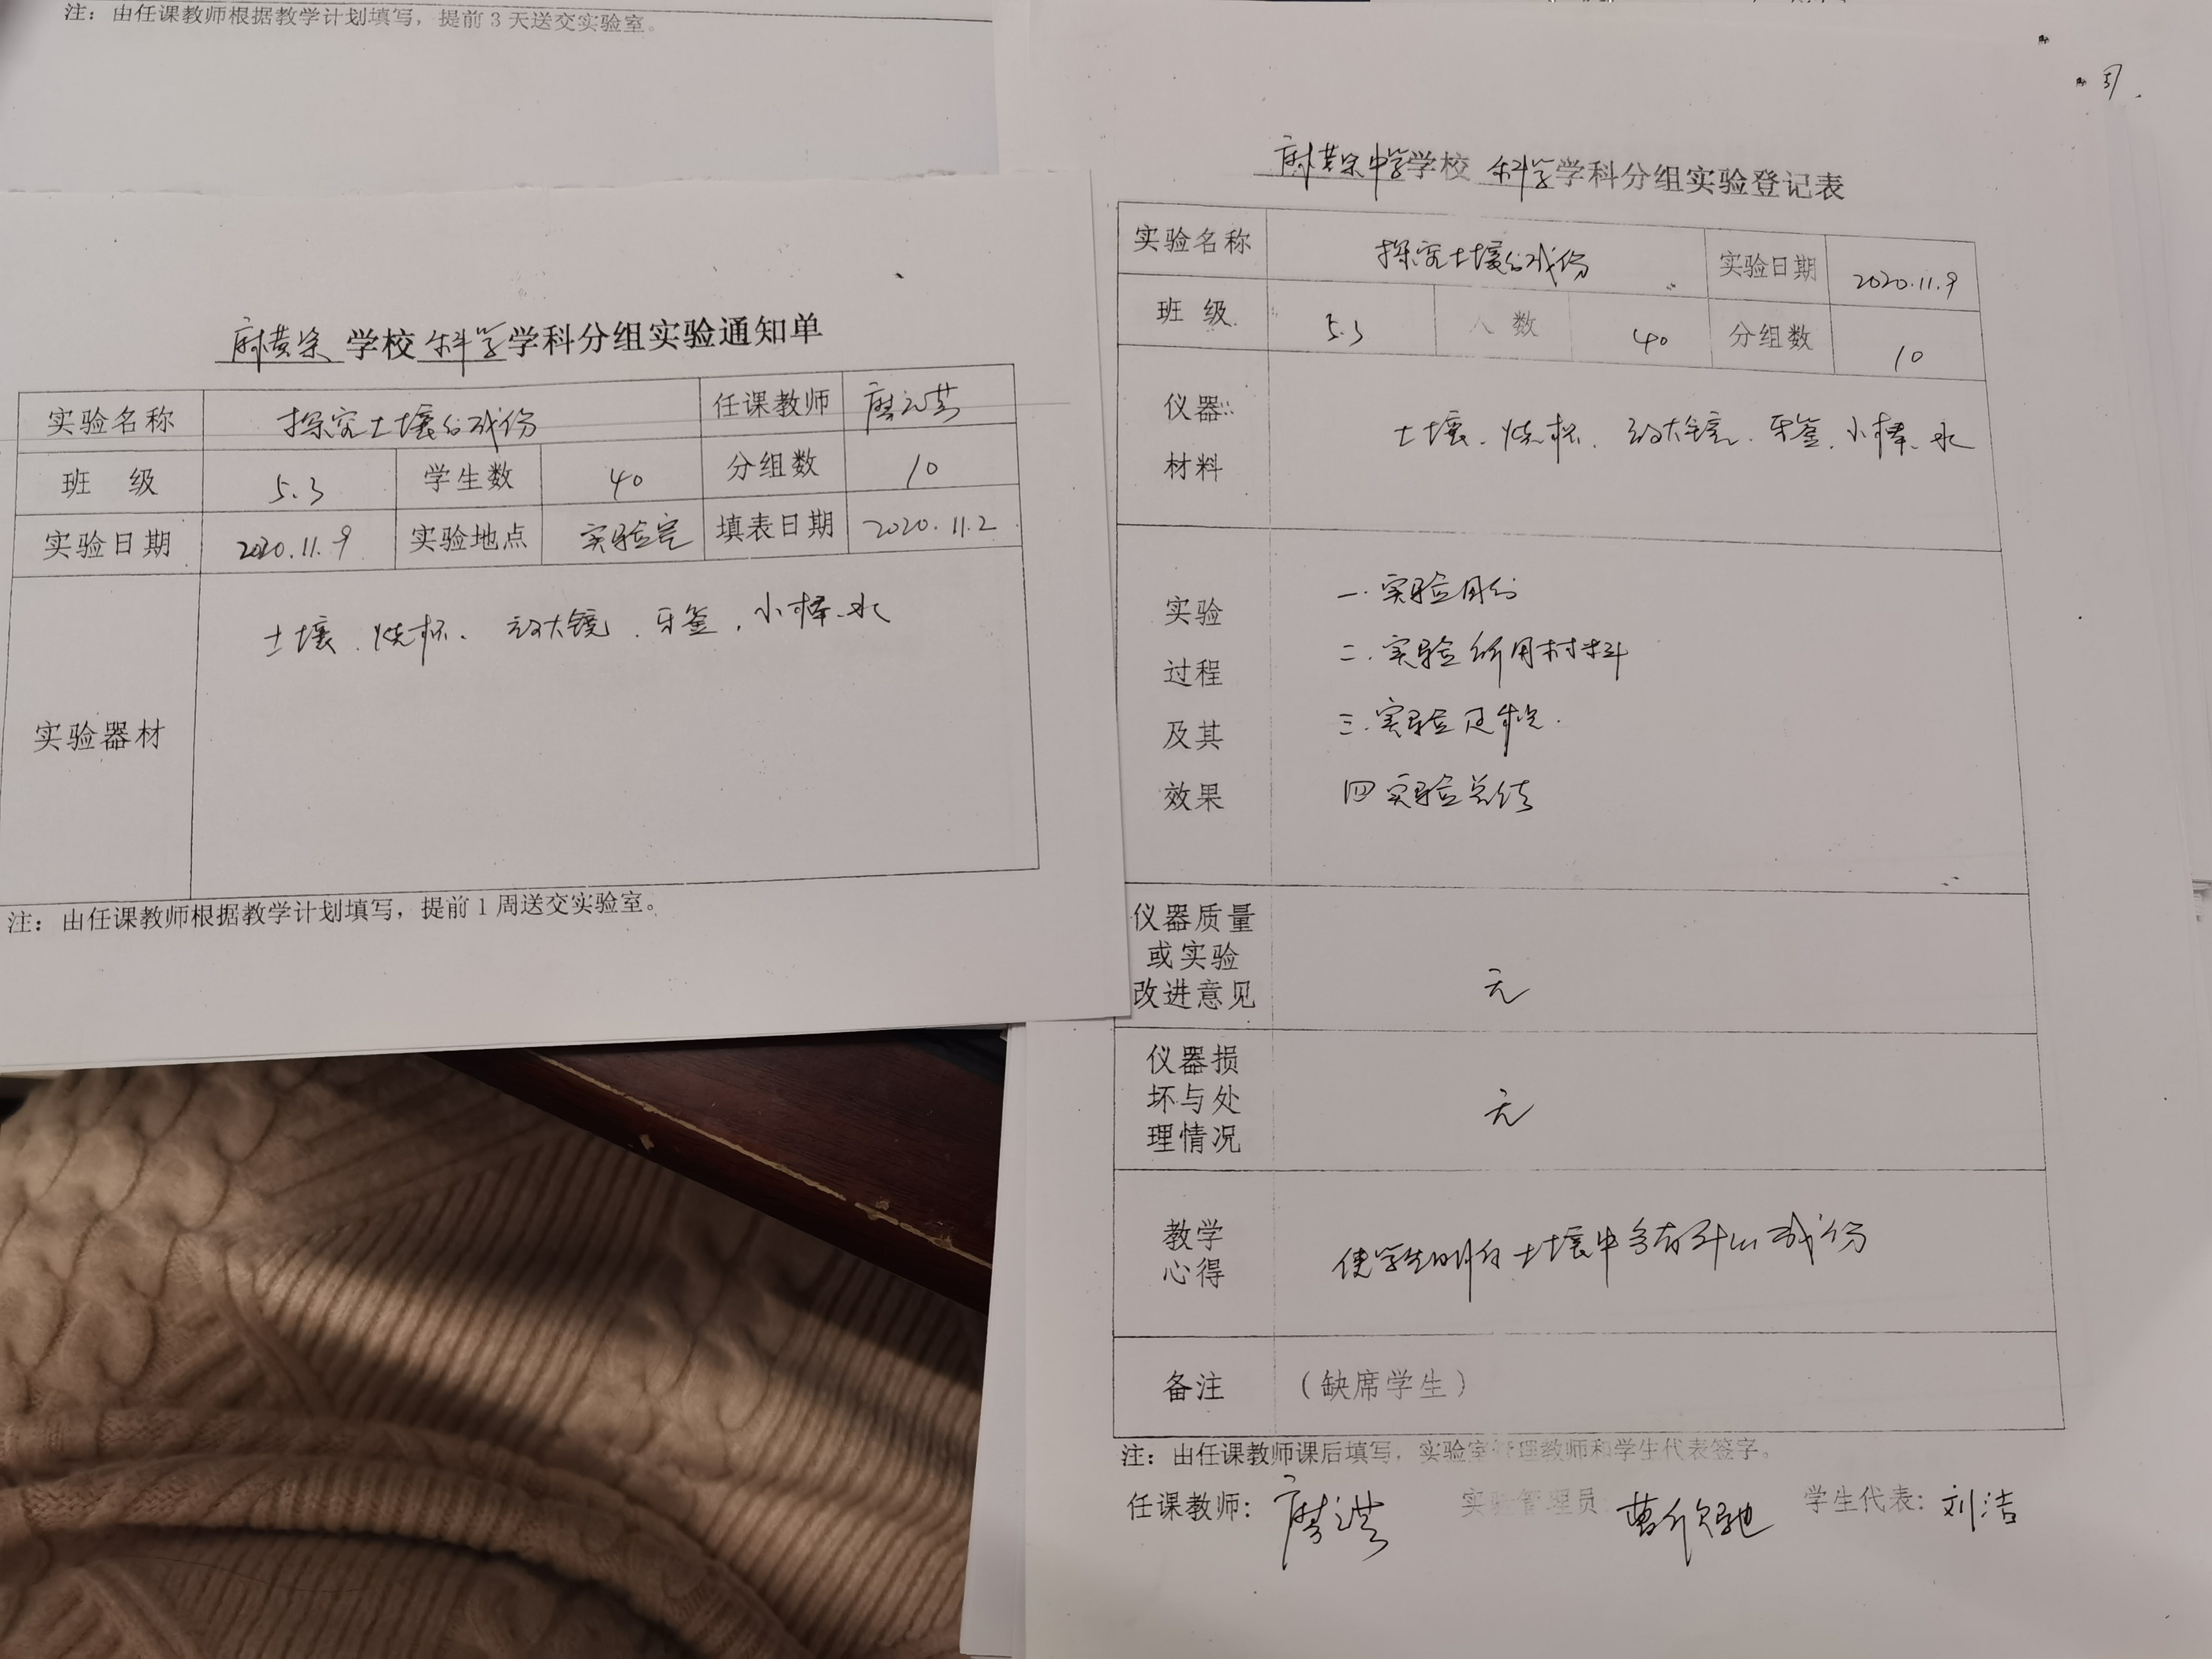 注：由任课教师根据教学计划填写，提前3天送交实验室。
麻黄梁 学校 科学 学科分组实验通知单
实验名称 探究土壤的成份 任课教师
班 级 5.3 学生数 40 分组数 10
实验日期 2020.11.9 实验地点 实验室 填表日期 2020.11.2
实验器材 土壤、烧杯、放大镜、牙签、小棒、水
注：由任课教师根据教学计划填写，提前1周送交实验室。
麻黄梁中学学校 科学学科分组实验登记表
实验名称 探究土壤的成份 实验日期 2020.11.9
班 级 5.3 人 数 40 分组数 10
仪器
材料
土壤、烧杯、放大镜、牙签、小棒、水
实验
过程
及其
效果
一.实验目的
二.实验所用材料
三.实验过程.
四 实验总结
仪器质量
或实验
改进意见
无
仪器损
坏与处
理情况
无
教学
心得
使学生明白土壤中含有什么成份
备注 （缺席学生）
注：由任课教师课后填写，实验室管理教师和学生代表签字。
任课教师： 实验管理员： 学生代表：刘洁